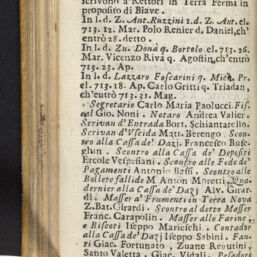 scrivono a Rettori in Terra Ferma in
proposito di Biave.
In l. d. Z. Ant. Ruzzini l. d. Z. Ant. el.
713. 12. Mar. Polo Renier d. Daniel, ch'
entrò 28. detto.
In l. d. Zu. Donà q. Bortolo el. 713. 26.
Mar. Vicenzo Riva q. Agostin, ch'entrò
713. 23. Ap.
In l. d. Lazzaro Foscarini q. Mich. Pr.
el. 713. 18. Ap. Carlo Gritti q. Triadan,
ch'entrò 713. 21. Mag.
Segretario Carlo Maria Paolucci. Fis-
cal Gio. Noni. Notaro Andrea Valier.
Scrivan d'Entrada Bort. Schiantarello.
Scrivan d'Uscida Matt. Berengo. Scon-
tro alla Cassa de' Dazj. Francesco Bus-
ghin. Scontro alla Cassa de' Depositi
Ercole Vespesiani. Scontro alle Fede de'
Pagamenti Antonio Bassi. Scontro alle
Bollete fallide M. Anton Moretti.
dernier alla Cassa de' Dazj Alv. Girar-
di. Masser a' Frumenti in Terra Nova
Z. Bat. Girardi. Scontro al detto Masser
Franc. Carapolin. Masser alle Farine
e Biscoti Iseppo Marieschi. Contador
alla Cassa de' Dazj Iseppo Sabini. Fan-
ti Giac. Fortunato, Zuane Reoutini,
Santo Valetta. Giac. Vidali. Pesadori